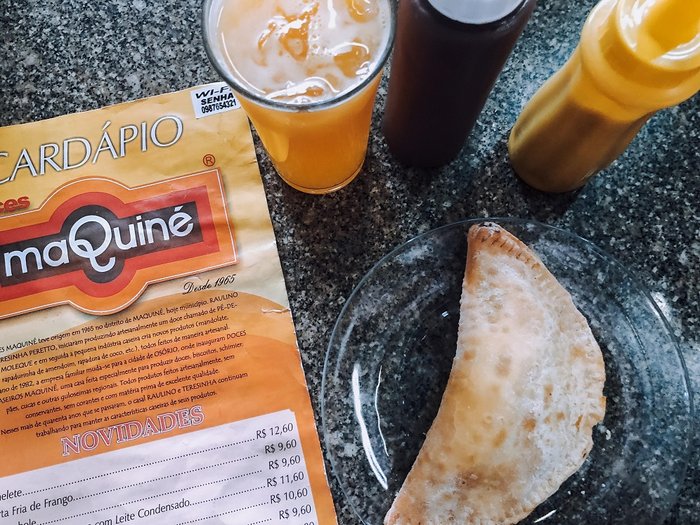 WI-FI
SENHA
0987654321
CARDÁPIO
®
ces
maQuiné
Desde 1965
ES MAQUINÉ teve origem em 1965 no distrito de MAQUINÉ, hoje município. RAULINO
TERESINHA PERETTO, iniciaram produzindo artesanalmente um doce chamado de PÉ-DE-
MOLEQUE e em seguida a pequena indústria caseira criou novos produtos (mandolate,
rapadurinha de amendoim, rapadura de coco, etc.), todos feitos de maneira artesanal.
ano de 1982, a empresa familiar muda-se para a cidade de OSÓRIO, onde inauguram DOCES
ASEIROS MAQUINÉ, uma casa feita especialmente para produzir doces, biscoitos, schimier,
pães, cucas e outras guloseimas regionais. Todos produtos feitos artesanalmente, sem
conservantes, sem corantes e com matéria prima de excelente qualidade.
Nesses mais de quarenta anos que se passaram, o casal RAULINO e TERESINHA continuam
trabalhando para manter as características caseiras de seus produtos.
NOVIDADES
elete R$ 12,60
rta Fria de Frango R$ 9,60
R$ 9,60
R$ 11,60
com Leite Condensado R$ 10,60
R$ 9,60